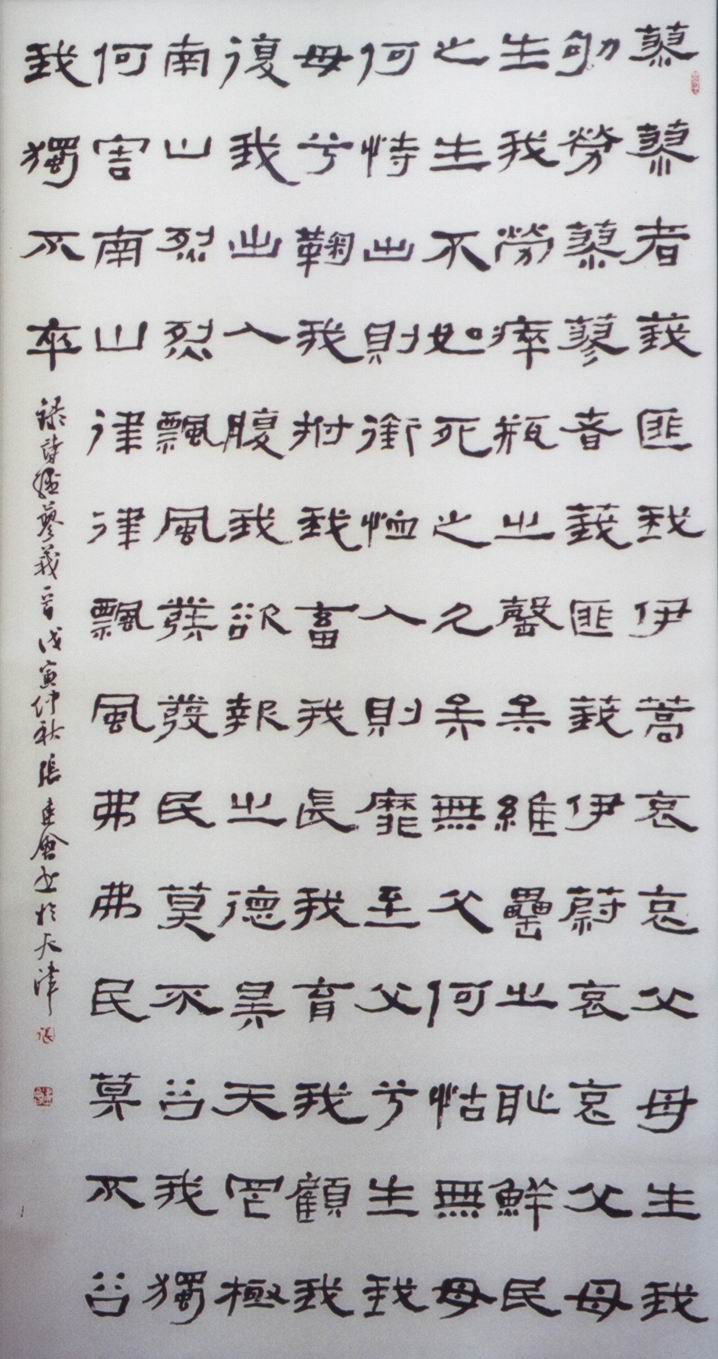 蓼蓼者莪匪我伊蒿哀哀父母生我
劬勞蓼蓼者莪匪莪伊蔚哀哀父母
生我勞瘁瓶之罄矣維罍之耻鮮民
之生不如死之久矣無父何怙無母
何恃出則銜恤入則靡至父兮生我
母兮鞠我拊我畜我長我育我顧我
復我出入腹我欲報之德昊天罔極
南山烈烈飄風發發民莫不谷我獨
何害南山律律飄風弗弗民莫不谷
我獨不卒
錄詩經蓼莪一首戊寅仲秋張建會書於天津